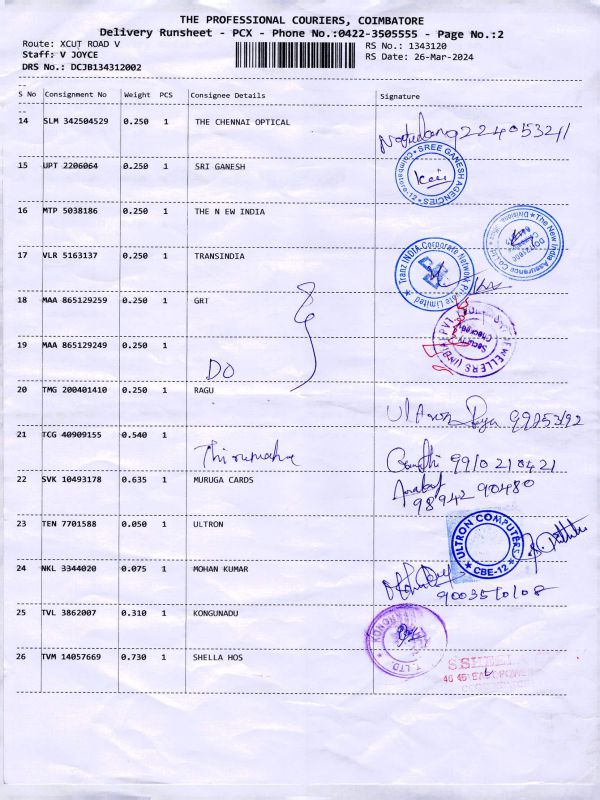 THE PROFESSIONAL COURIERS, COIMBATORE
Delivery Runsheet - PCX - Phone No.:0422-3505555 - Page No.:2
Route: XCUT ROAD V RS No.: 1343120
Staff: V JOYCE RS Date: 26-Mar-2024
DRS No.: DCJB134312002
S No Consignment No Weight PCS Consignee Details Signature
14 SLM 342504529 0.250 1 THE CHENNAI OPTICAL
15 UPT 2206064 0.250 1 SRI GANESH
SREE GANESH AGENCIES
Coimbatore-12
16 MTP 5038186 0.250 1 THE N EW INDIA
The New India Assurance Co.Ltd.
17 VLR 5163137 0.250 1 TRANSINDIA
Tranz INDIA Corporate Network Private Limited
18 MAA 865129259 0.250 1 GRT
JEWELLERS (IND) PVT
Security Checked
19 MAA 865129249 0.250 1
DO
20 TMG 200401410 0.250 1 RAGU
21 TCG 40909155 0.540 1
99102 10421
22 SVK 10493178 0.635 1 MURUGA CARDS
98942 90480
23 TEN 7701588 0.050 1 ULTRON
ULTRON COMPUTERS
CBE-12
24 NKL 3344020 0.075 1 MOHAN KUMAR
25 TVL 3862007 0.310 1 KONGUNADU
26 TVM 14057669 0.730 1 SHELLA HOS